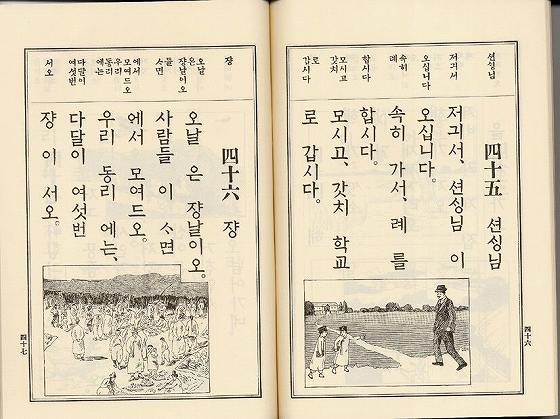 션ᄉᆡᆼ님
저긔서
오십니다
속히
례
합시다
모시고
갓치
로
갑시다
四十五 션ᄉᆡᆼ님
저긔서、션ᄉᆡᆼ님 이
오십니다。
속히 가서、례 를
합시다。
모시고、갓치 학교
로 갑시다。
四十六
쟝
오날
은
쟝날이오
들
ᄉᆞ면
에서
모여드오
우리
동리
에는
다달이
여섯번
서오
四十六 쟝
오날 은 쟝날이오。
사람들 이 ᄉᆞ면
에서 모여드오。
우리 동리 에는、
다달이 여섯번
쟝 이 서오。
四十七